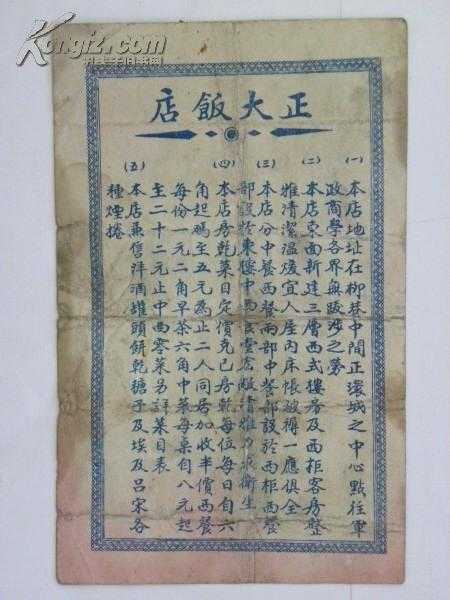 Kongfz.com
正大飯店
(一)
本店地址在柳巷中間正環城之中心點往軍
政商學各界無跋涉之勞
(二)
本店東面新建三層西式樓房及西拒客房整
雅清潔溫煖宜人屋内床帳被褥一應俱全
(三)
本店分中餐西餐兩部中餐部設於西拒西餐
部設於東樓中西 寬敞清雅 衛生
(四)
本店房乾菜目定價克己房乾每位每日自六
角起碼至五元為止二人同居加收半價西餐
每份一元二角早茶六角中菜每桌自八元起
至二十二元止中西零菜另詳菜目表
(五)
本店兼售洋酒罐頭餅乾糖子及埃及呂宋各
種煙捲